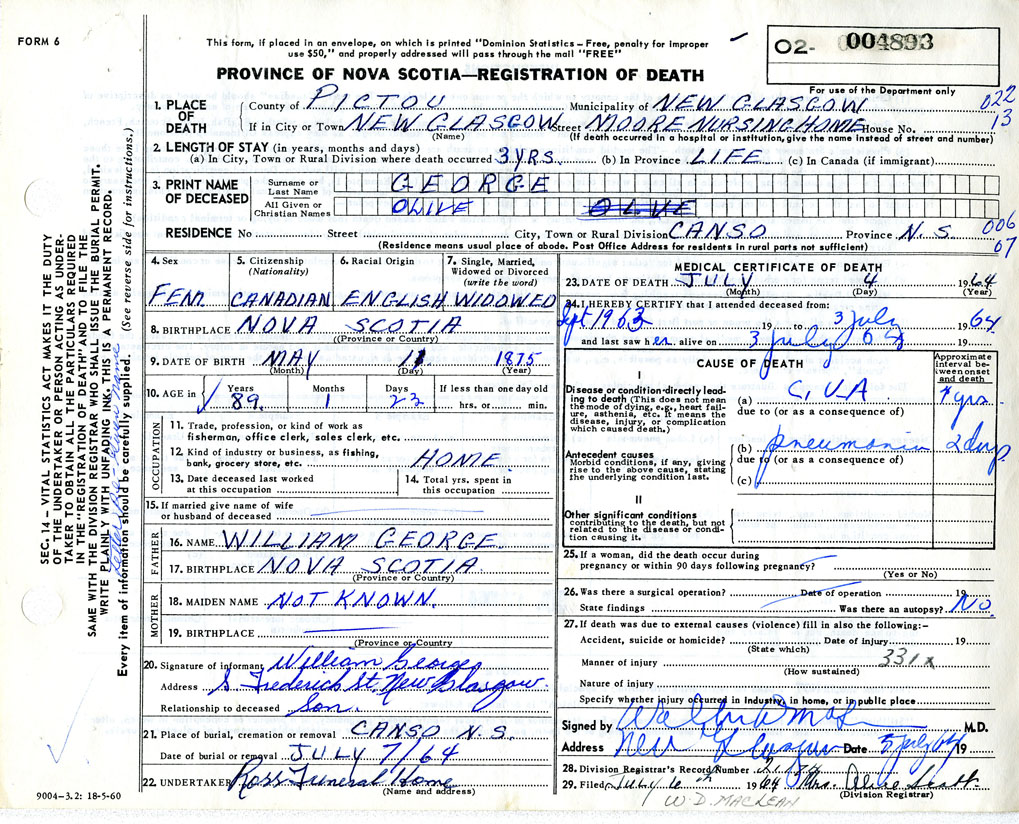 FORM 6
This form, if placed in an envelope, on which is printed "Dominion Statistics – Free, penalty for improper
use $50," and properly addressed will pass through the mail "FREE"
02- 004893
PROVINCE OF NOVA SCOTIA—REGISTRATION OF DEATH
For use of the Department only
1. PLACE OF DEATH
County of PICTOU Municipality of NEW GLASGOW 022
If in City or Town NEW GLASGOW Street MOORE NURSING HOME House No. 13
(Name) (If death occurred in a hospital or institution, give the name instead of street and number)
2. LENGTH OF STAY (in years, months and days)
(a) In City, Town or Rural Division where death occurred 3 YRS. (b) In Province LIFE (c) In Canada (if immigrant)
3. PRINT NAME OF DECEASED
Surname or Last Name GEORGE
All Given or Christian Names OLIVE OLIVE
RESIDENCE No Street City, Town or Rural Division CANSO Province N. S. 006
(Residence means usual place of abode. Post Office Address for residents in rural parts not sufficient) 07
4. Sex FEM
5. Citizenship (Nationality) CANADIAN
6. Racial Origin ENGLISH
7. Single, Married, Widowed or Divorced (write the word) WIDOWED
8. BIRTHPLACE NOVA SCOTIA
(Province or Country)
9. DATE OF BIRTH MAY 11 1875
(Month) (Day) (Year)
10. AGE in Years 89 Months 1 Days 23 If less than one day old hrs. or min.
OCCUPATION
11. Trade, profession, or kind of work as
fisherman, office clerk, sales clerk, etc.
12. Kind of industry or business, as fishing,
bank, grocery store, etc. HOME
13. Date deceased last worked
at this occupation
14. Total yrs. spent in
this occupation
15. If married give name of wife
or husband of deceased
FATHER
16. NAME WILLIAM GEORGE
17. BIRTHPLACE NOVA SCOTIA
(Province or Country)
MOTHER
18. MAIDEN NAME NOT KNOWN.
19. BIRTHPLACE
(Province or Country)
20. Signature of informant William George
Address S. Frederick St. New Glasgow.
Relationship to deceased Son.
21. Place of burial, cremation or removal CANSO N.S.
Date of burial or removal JULY 7/64
22. UNDERTAKER Ross Funeral Home
(Name and address)
9004–3.2: 18-5-60
MEDICAL CERTIFICATE OF DEATH
23. DATE OF DEATH JULY 4 1964
(Month) (Day) (Year)
24. I HEREBY CERTIFY that I attended deceased from:
Sept 1963 19 to 3 July 1964
and last saw her alive on 3 July 64 19
CAUSE OF DEATH
Approximate interval between onset and death
I
Disease or condition directly leading to death (This does not mean the mode of dying, e.g., heart failure, asthenia, etc. It means the disease, injury, or complication which caused death.)
(a) C.V.A yrs
due to (or as a consequence of)
Antecedent causes
Morbid conditions, if any, giving rise to the above cause, stating the underlying condition last.
(b) pneumonia 2 days
due to (or as a consequence of)
(c)
II
Other significant conditions
contributing to the death, but not related to the disease or condition causing it.
25. If a woman, did the death occur during
pregnancy or within 90 days following pregnancy?
(Yes or No)
26. Was there a surgical operation? Date of operation 19
State findings Was there an autopsy? NO
27. If death was due to external causes (violence) fill in also the following:–
Accident, suicide or homicide? Date of injury 19
(State which)
Manner of injury 331x
(How sustained)
Nature of injury
Specify whether injury occurred in industry, in home, or in public place
Signed by M.D.
Address New Glasgow Date 5 July 64 19
28. Division Registrar's Record Number
29. Filed July 6th 1964 Mrs. Alice
(Division Registrar)
W.D. MACLEAN
SEC. 14 – VITAL STATISTICS ACT MAKES IT THE DUTY
OF THE UNDERTAKER OR PERSON ACTING AS UNDER-
TAKER TO OBTAIN ALL THE PARTICULARS REQUIRED
IN THE "REGISTRATION OF DEATH" AND TO FILE THE
SAME WITH THE DIVISION REGISTRAR WHO SHALL ISSUE THE BURIAL PERMIT.
WRITE PLAINLY WITH UNFADING INK. THIS IS A PERMANENT RECORD.
Every item of information should be carefully supplied. (See reverse side for instructions.)